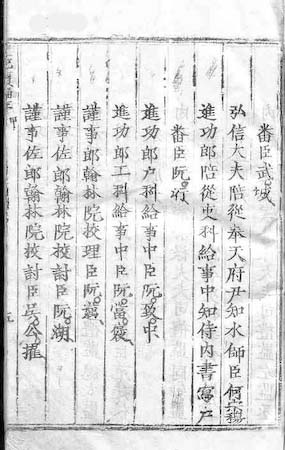 番臣武城
弘信大夫陪從奉天府尹知水師臣何宗
進功郎陪從吏科給事中知侍內書寫户
番臣阮府
進功郎户科給事中臣阮致中
進功郎工科給事中臣阮當
謹事郎翰林院校理臣阮
謹事佐郎翰林院校討臣阮湖
謹事佐郎翰林院校討臣吳公擢